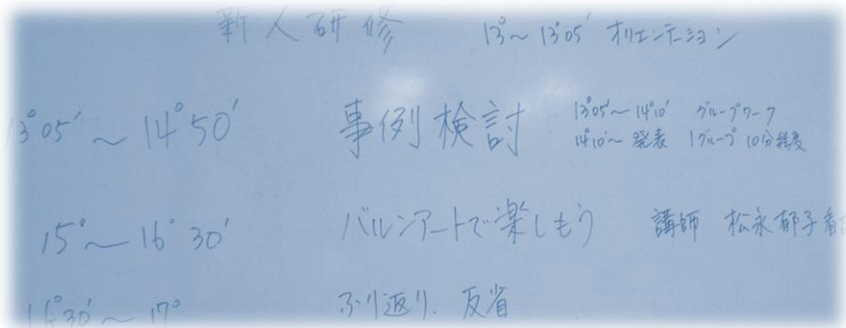 新人研修 13°~13°05' オリエンテーション
13°05'~14°50' 事例検討 13°05'~14°10' グループワーク
14°10'~ 発表 1グループ 10分程度
15°~16°30' バルンアートで楽しもう 講師 松永郁子
16°30'~17° ふり返り、反省